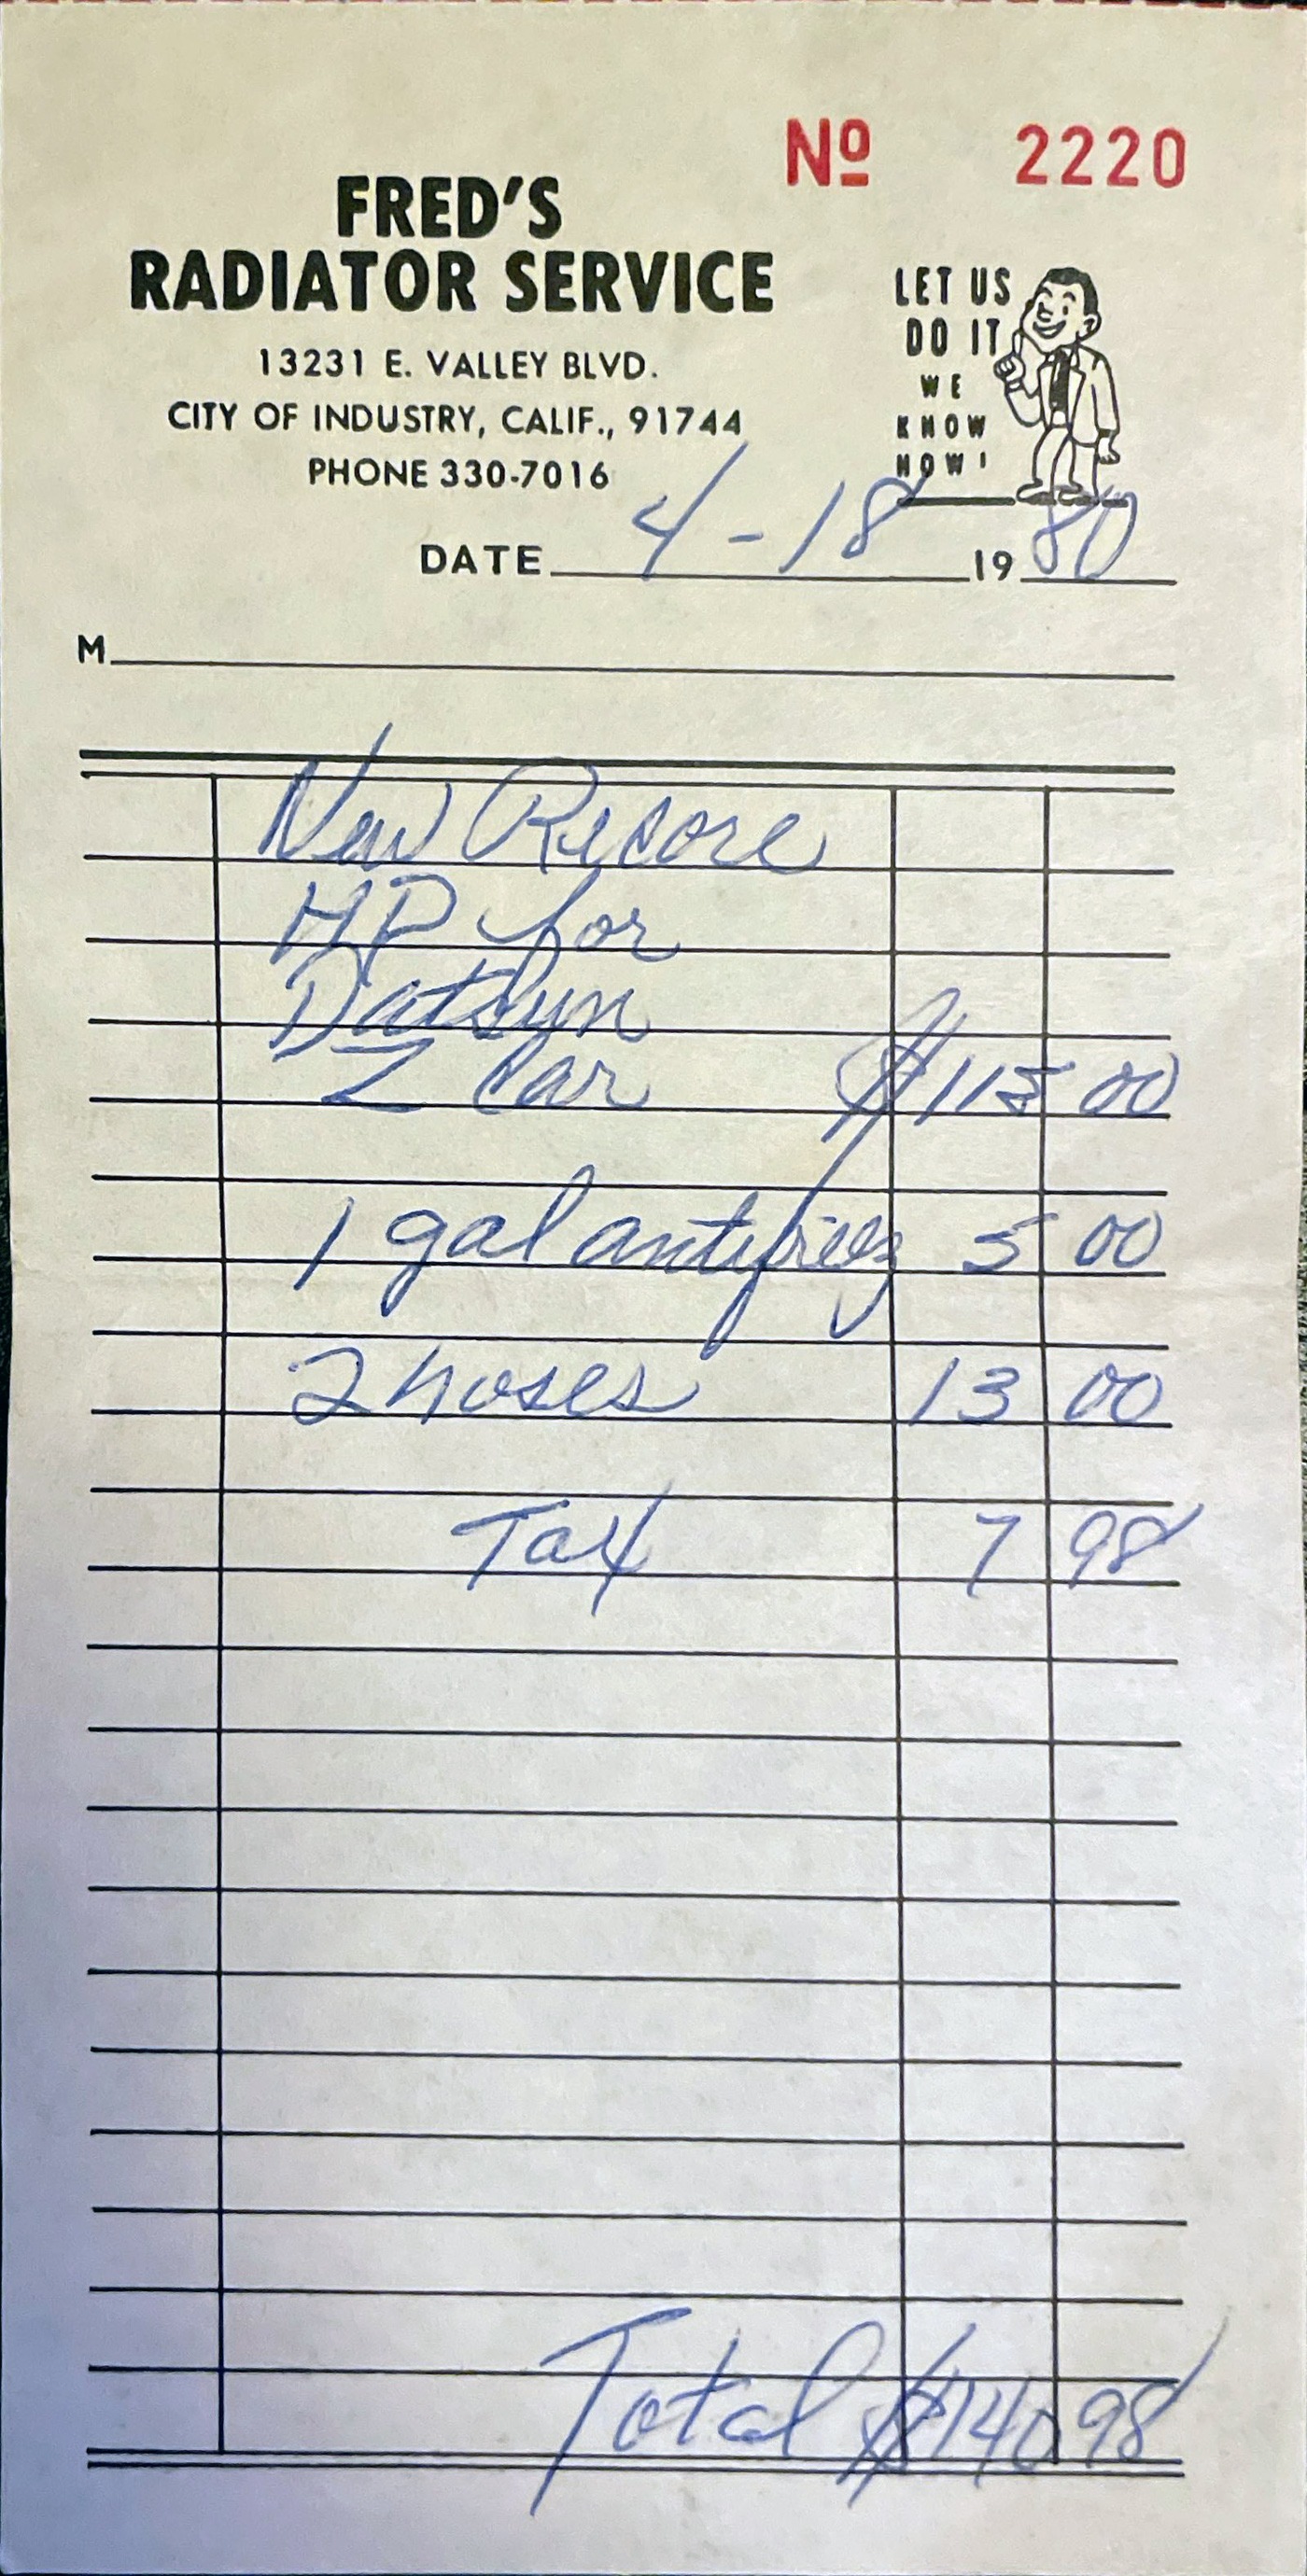 Nº 2220
FRED'S
RADIATOR SERVICE
13231 E. VALLEY BLVD.
CITY OF INDUSTRY, CALIF., 91744
PHONE 330-7016
LET US
DO IT
WE
KNOW
HOW!
DATE 4-18 1980
M
New Recore
HP for
Datsun
Z Car $115 00
1 gal antifreez 5 00
2 hoses 13 00
Tax 7 98
Total $140 98